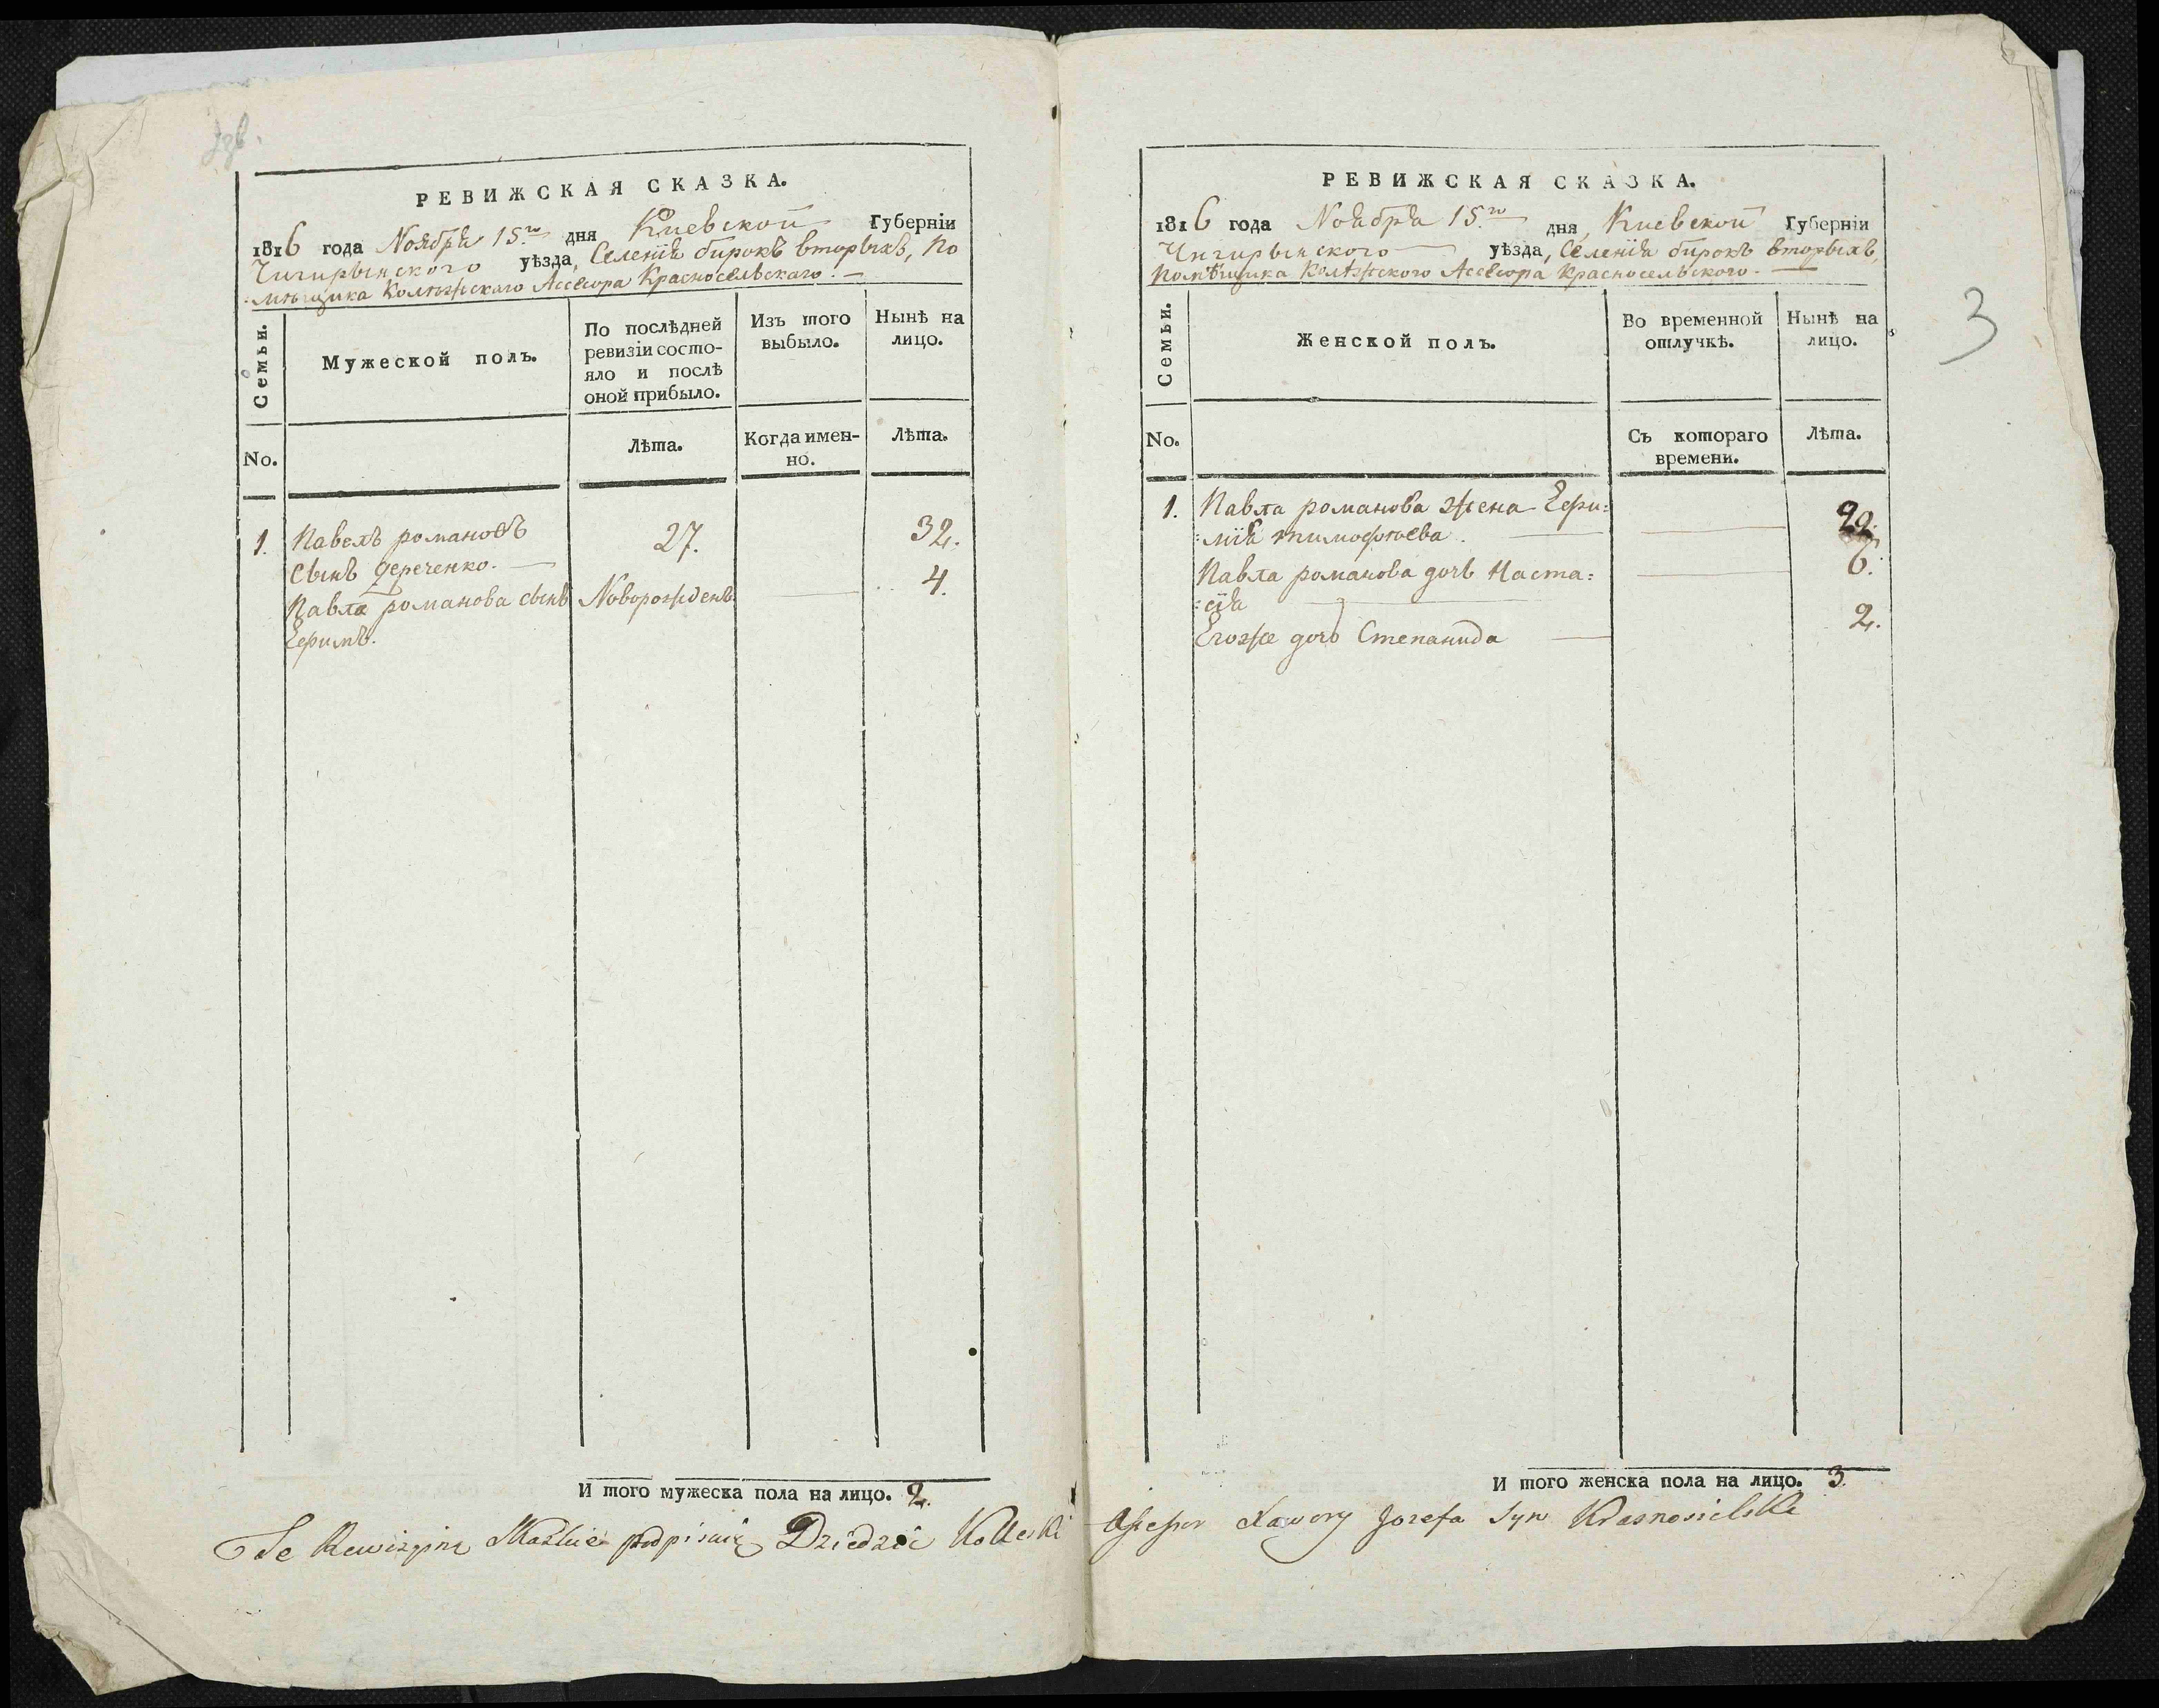 РЕВИЖСКАЯ СКАЗКА.
1816 года Ноября 15го дня Киевской Губерніи
Чигирынского уѣзда, Селенія бирокъ вторыхъ, По
мѣщика Колѣжскаго Ассесора Красносельскаго. —
Семьи.
Мужеской полъ.
По послѣдней
ревизіи состо-
яло и послѣ
оной прибыло.
Изъ того
выбыло.
Нынѣ на
лицо.
No.
Лѣта.
Когда имен-
но.
Лѣта.
1. Павелъ романовъ 27. 32.
сынъ дереченко. —
Павла романова сынъ Новорожденъ. 4.
Ефимъ.
И того мужеска пола на лицо. 2.
РЕВИЖСКАЯ СКАЗКА.
1816 года Ноября 15го дня, Киевской Губерніи
Чигирынского уѣзда, Селенія бирокъ вторыхъ,
Помѣщика Колѣжского Ассесора Красносельского. —
3
Семьи.
Женской полъ.
Во временной
отлучкѣ.
Нынѣ на
лицо.
No.
Съ котораго
времени.
Лѣта.
1. Павла романова жена Ефи:
:мія тимофѣева. 29.
Павла романова дочь Наста: 6.
:сія
Егоже дочь Степанида 2.
И того женска пола на лицо. 3.
Te Rewizyiną Skazkie podpisuię Dziedzic Kolleski Assessor Xawery Jozefa Syn Krasnosielski